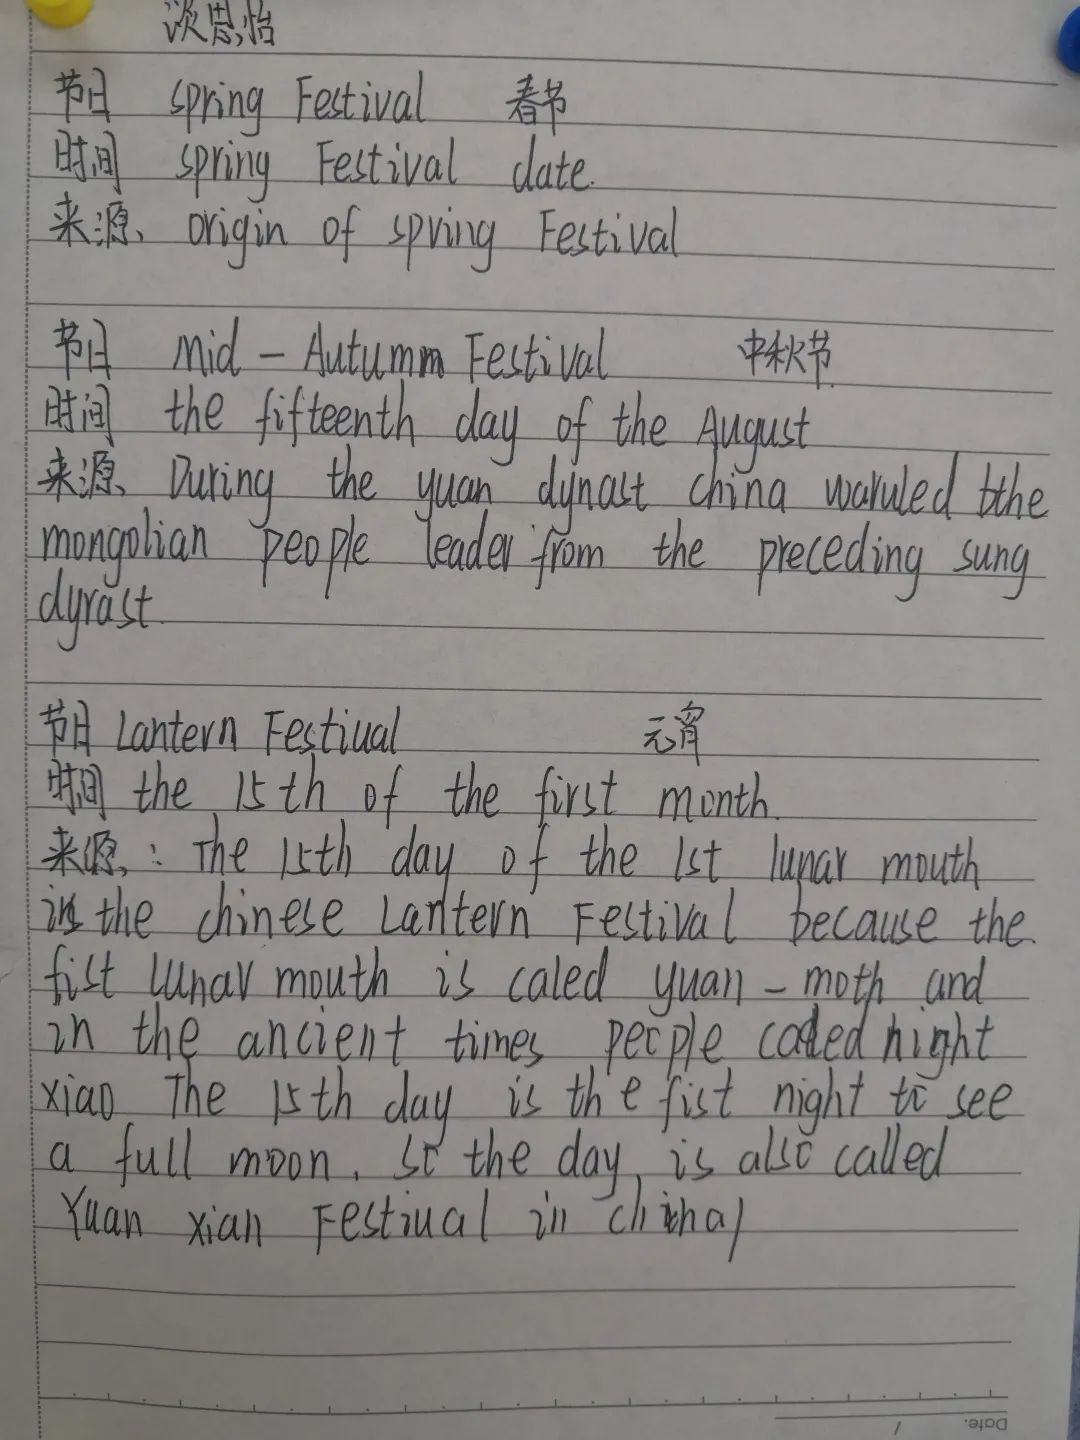 淡思怡
节日 spring Festival 春节
时间 spring Festival date.
来源、origin of spving Festival
节日 mid - Autumm Festival 中秋节.
时间 the fifteenth day of the August
来源、During the yuan dynast china waruled bthe
mongolian people leader from the preceding sung
dyrast.
节日 Lantern Festiual 元宵
时间 the 15th of the first month.
来源,: The 15th day of the 1st lunar mouth
is the chinese Lantern Festival because the
fist lunar mouth is caled yuan - moth and
in the ancient times people called night
xiao The 15th day is the fist night to see
a full moon. so the day, is also called
Yuan xian Festiual in china)
Date. /